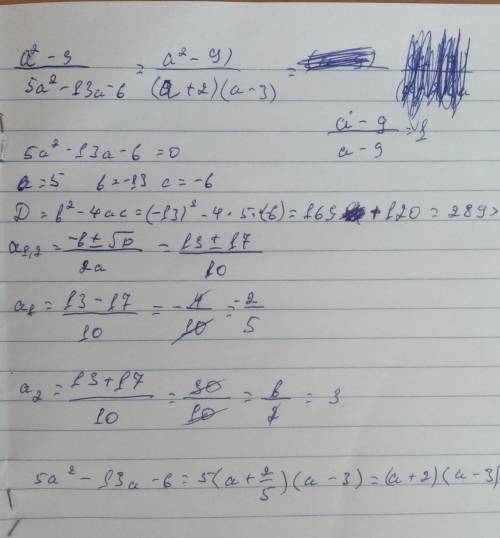 a² - 9 / 5a² - 13a - 6 = a² - 9) / (a + 2)(a - 3) =
a² - 9 / a - 9 = 1
5a² - 13a - 6 = 0
a = 5 b = -13 c = -6
D = b² - 4ac = (-13)² - 4 · 5 · (-6) = 169 + 120 = 289 >
a1,2 = -b ± √D / 2a = 13 ± 17 / 10
a1 = 13 - 17 / 10 = - 4 / 10 = -2 / 5
a2 = 13 + 17 / 10 = 30 / 10 = = 3
5a² - 13a - 6 = 5(a + 2/5)(a - 3) = (a + 2)(a - 3)